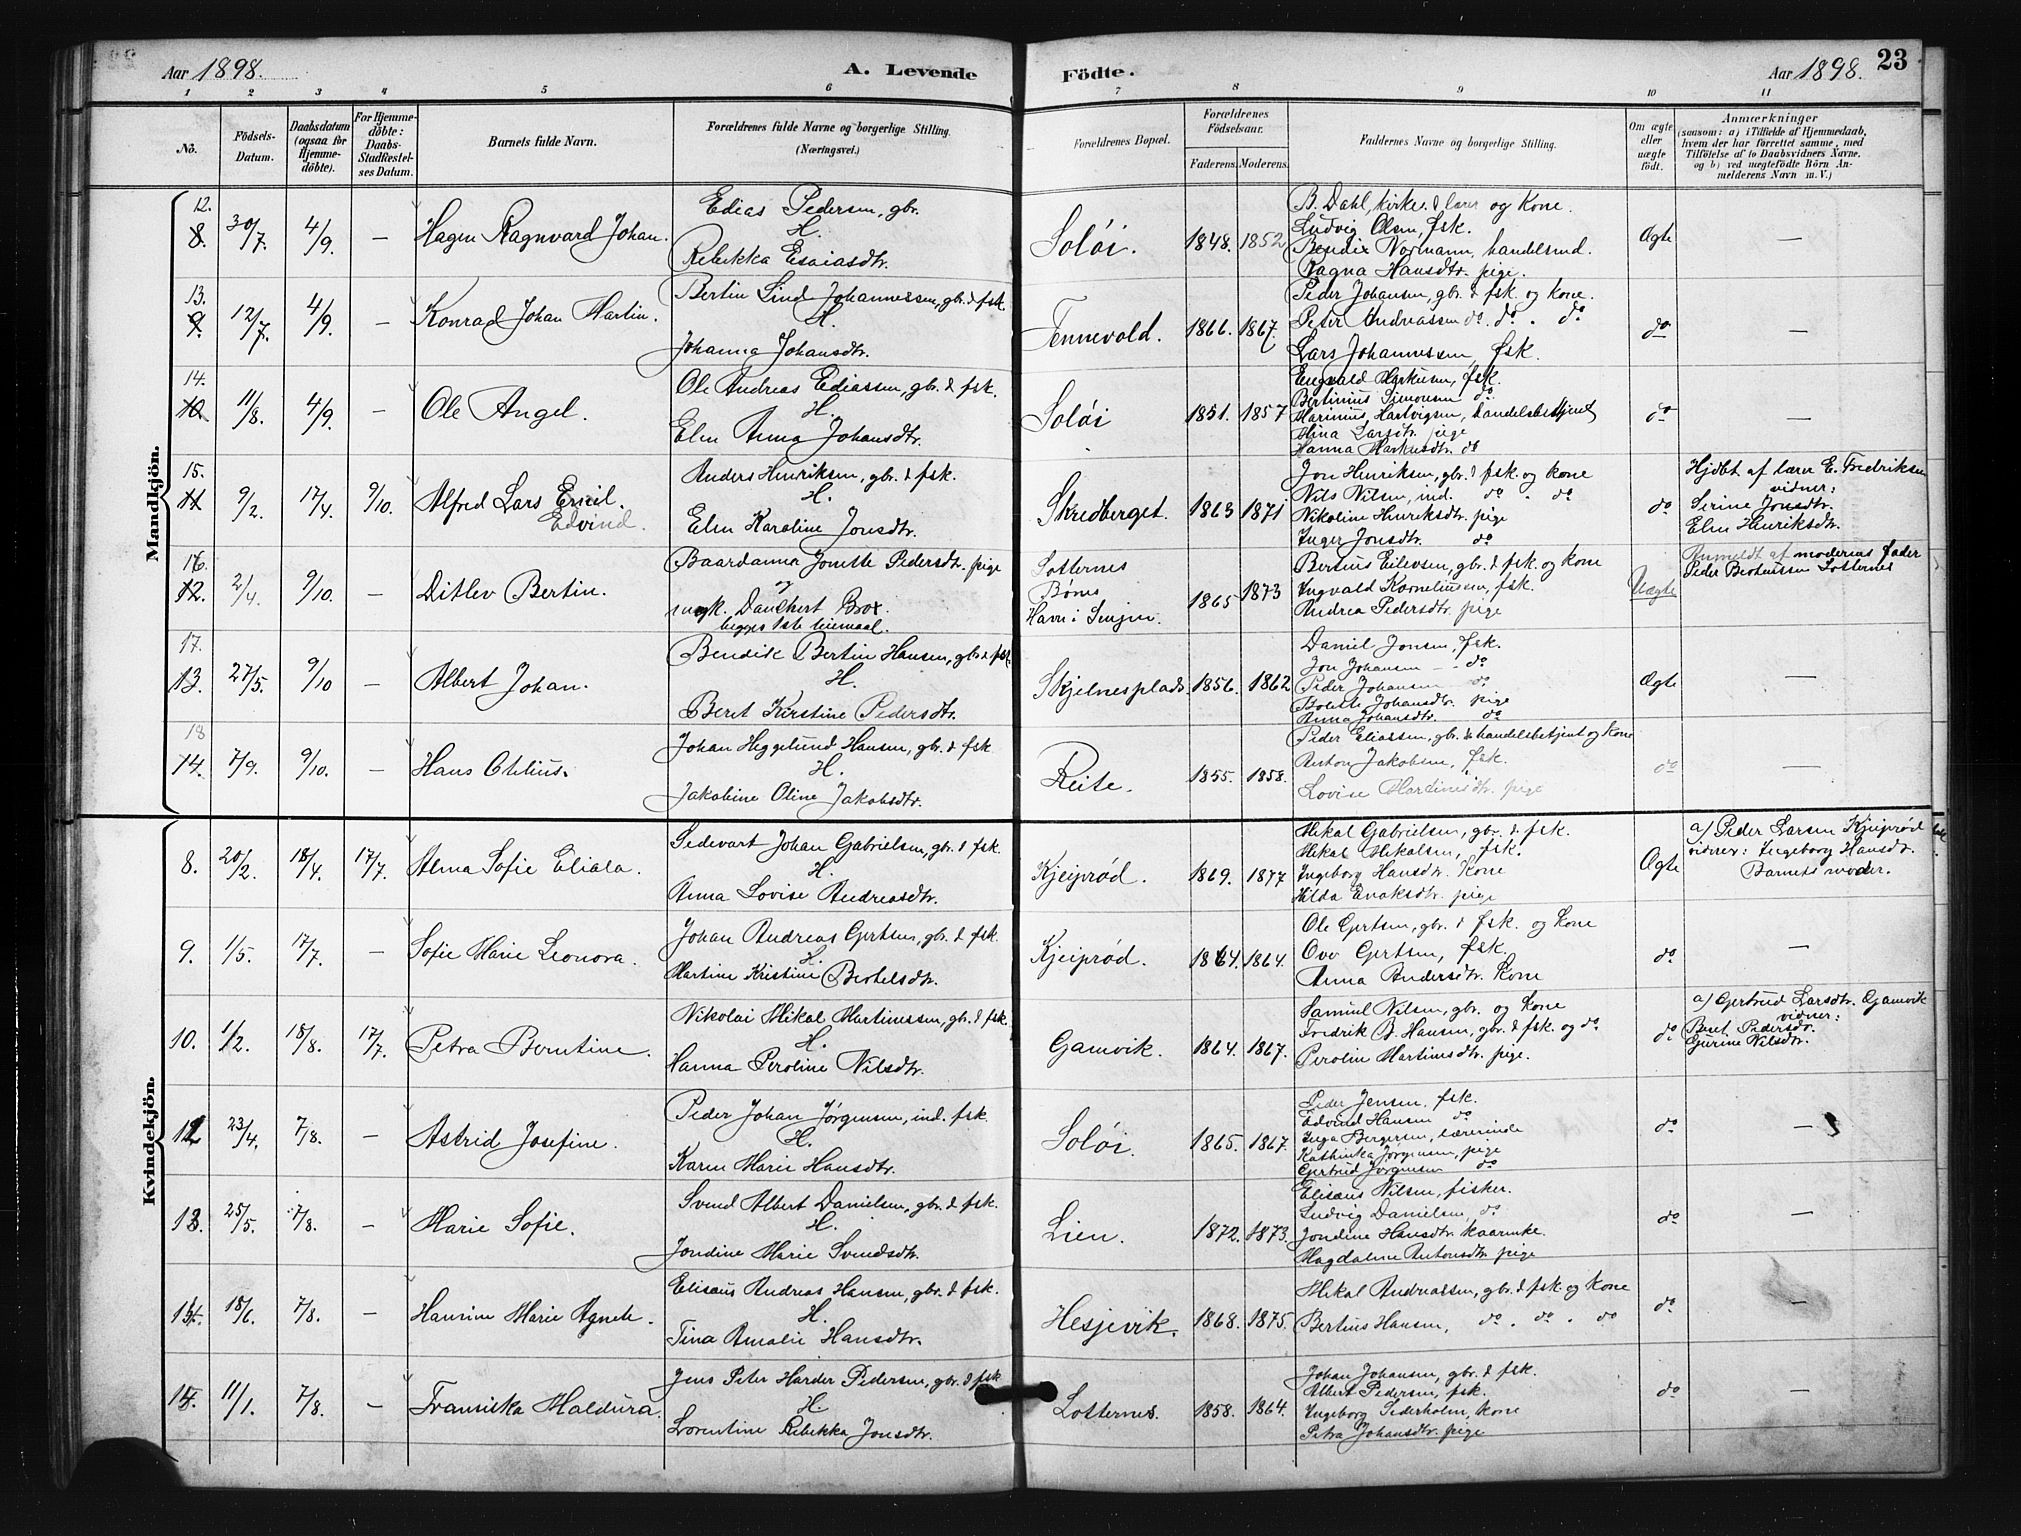 Aar 1898. A. Levende Födte. Aar 1898. 23
1 2 3 4 5 6 7 8 9 10 11
No. Födsels-Datum. Daabsdatum (ogsaa for Hjemme-döbte). For Hjemme-döbte: Daabs-Stadfæstel-ses Datum. Barnets fulde Navn. Forældrenes fulde Navne og borgerlige Stilling. (Næringsvei.) Forældrenes Bopæl. Forældrenes Födselsaar. Faderens. Moderens. Faddernes Navne og borgerlige Stilling. Om ægte eller uægte födt. Anmærkninger (saasom: a) i Tilfælde af Hjemmedaab, hvem der har forrettet samme, med Tilföielse af to Daabsvidners Navne, og b) ved uægtefödte Börn An-melderens Navn m. V.)
Mandkjön.
12.
8. 30/7. 4/9. — Hagen Ragnvard Johan.
Edias Pedersen, gbr.
H.
Rebekka Esaiasdtr.
Soløi. 1848. 1852
B. Dahl, kirkes. & lærer og Kone.
Ludvig Olsen, fsk.
Bendix Normann, handelsmd.
Ragna Hansdtr. pige.
Ægte —
13.
9. 12/7. 4/9. — Konrad Johan Martin.
Bertin Lind Johannessen, gbr. & fsk.
H.
Johanna Johansdtr.
Tennevold. 1866. 1867.
Peder Johansen, gbr. & fsk. og Kone.
Peter Andreassen do. do. " do
Lars Johannessen, fsk.
do —
14.
10. 11/8. 4/9. — Ole Angel.
Ole Andreas Ediassen, gbr. & fsk.
H.
Elen Anna Johansdtr.
Soløi 1851. 1857
Engvald Markusen, fsk.
Bertinius Simonsen do.
Marinius Hartvigsen, handelsbetjent
Mina Larsdtr. pige
Hanna Markusdtr. do
do —
15.
11. 9/2. 17/4. 9/10. Alfred Lars Emil.
Edvind.
Anders Henriksen, gbr. & fsk.
H.
Elen Karoline Jonsdtr.
Skredberget. 1863 1871
Jon Henriksen, gbr. & fsk. og kone
Nils Nilsen, ind. do " do
Nikoline Henriksdtr. pige
Inger Jonsdtr. do
do
Hjdbt af lærer E. Fredriksen
vidner:
Serine Jonsdtr.
Elen Henriksdtr.
16.
12. 2/4. 9/10. — Ditlev Bertin.
Baardanna Jonette Pedersdtr. pige
og
ungk. Danchert Brox.
begges 1ste leiemaal.
Lotternes
Bønes
Havn i Senjen. 1865 1873
Bertius Eilevsen, gbr. & fsk. og kone
Ingvald Korneliussen, fsk.
Andrea Pedersdtr. pige
Uægte
Anmeldt af moderens fader
Peder Berthussen Lotternes
17.
13. 27/5. 9/10 — Albert Johan.
Bendik Bertin Hansen, gbr. & fsk.
H.
Beret Kirstine Pedersdtr.
Skjelnesplads. 1856. 1862
Daniel Jonsen, fsk.
Jon Johansen - - do
Peder Johansen do
Bolette Johansdtr. pige
Anna Johansdtr. do
Ægte —
18
14. 7/9. 9/10. — Hans Otelius.
Johan Heggelund Hansen, gbr. & fsk
H.
Jakobine Oline Jakobsdtr.
Reite. 1855. 1858.
Peder Eliassen, gbr. & handelsbetjent og kone
Anton Jakobsen, fsk.
Lovise Martinesdtr. pige
do —
Kvindekjön.
8. 20/2. 18/4. 17/7. Alma Sofie Eliala.
Sedevart Johan Gabrielsen, gbr. & fsk.
H.
Anna Lovise Andreasdtr.
Kjeiprød. 1869. 1877
Mikal Gabrielsen, gbr. & fsk.
Mikal Mikalsen, fsk.
Ingeborg Hansdtr. Kone
Hilda Enoksdtr. pige
Ægte
a/ Peder Larsen Kjeiprød
vidner: Ingeborg Hansdr.
Barnets moder.
9. 1/5. 17/7. — Sofie Marie Leonora.
Johan Andreas Gertsen, gbr. & fsk.
H.
Martine Kristine Bertelsdtr.
Kjeiprød. 1864. 1864.
Ole Gertsen, gbr. & fsk. og Kone
Ovo Gertsen, fsk.
Anna Andersdtr. Kone
do. —
10. 1/2. 18/8. 17/7. Petra Berntine.
Nikolai Mikal Martinessen, gbr. & fsk.
H.
Hanna Peroline Nilsdtr.
Gamvik. 1864. 1867.
Samuel Nilsen, gbr. og Kone
Fredrik B. Hansen, gbr. & fsk. og do
Perolin Martinesdtr. pige.
do
a/ Gertrud Larsdtr. Gamvik
vidner:
Beret Pedersdr.
Gjurine Nilsdtr.
12 23/4. 7/8. — Astrid Josefine.
Peder Johan Jørgensen, ind. fsk.
H.
Karen Marie Hansdtr.
Soløi. 1865. 1867.
Peder Jensen, fsk.
Edvind Hansen do
Inga Bergersen, lærerinde
Kathinka Jørgensen, pige
Gertrud Jørgensen do
do. —
13. 25/5. 7/8. — Marie Sofie.
Svend Albert Danielsen, gbr. & fsk.
H.
Jondine Marie Svendsdtr.
Lien. 1872. 1873.
Elisæus Nilsen, fisker.
Ludvig Danielsen, do
Jondine Hansdtr. kaarenke.
Magdalene Antonsdtr. pige
do —
14. 18/6. 7/8. — Hansine Marie Agnete.
Elisæus Andreas Hansen, gbr. & fsk.
H.
Tina Amalie Hansdtr.
Hesjevik. 1868. 1875.
Mikal Andreassen, gbr. & fsk. og Kone
Bertius Hansen, do. do. " do
do —
15. 11/1. 7/8. — Fransiska Haldura.
Jens Peter Harder Pedersen, gbr. & fsk.
H.
Lorentine Rebekka Jonsdtr.
Lotternes. 1858. 1864.
Johan Johansen, gbr. & fsk.
Albert Pedersen, fsk.
Ingeborg Sederholm, kone
Petra Johansdtr. pige
do —